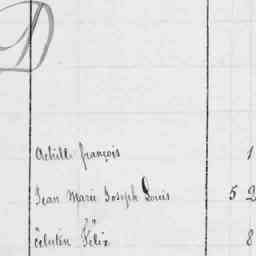 D
Achille françois 1
Jean Marie Joseph Louis 5 2
Félix 8